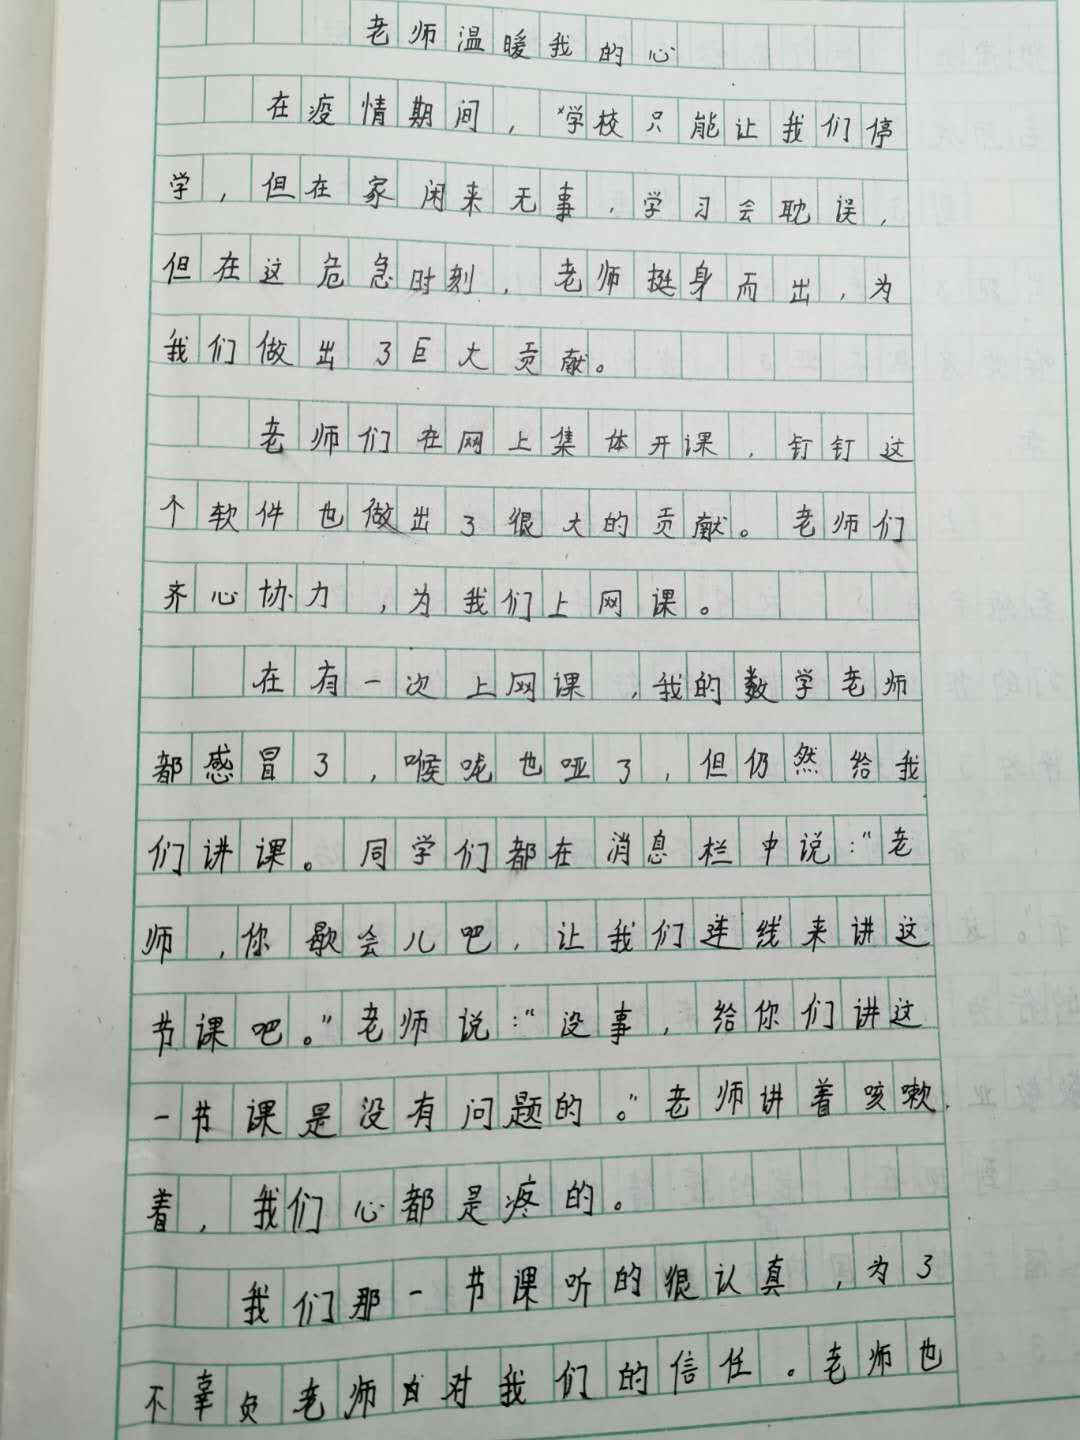 老师温暖我的心
在疫情期间，学校只能让我们停
学，但在家闲来无事，学习会耽误，
但在这危急时刻，老师挺身而出，为
我们做出了巨大贡献。
老师们在网上集体开课，钉钉这
个软件也做出了很大的贡献。老师们
齐心协力，为我们上网课。
在有一次上网课，我的数学老师
都感冒了，喉咙也哑了，但仍然给我
们讲课。同学们都在消息栏中说：“老
师，你歇会儿吧，让我们连线来讲这
节课吧。”老师说：“没事，给你们讲这
一节课是没有问题的。”老师讲着咳嗽
着，我们心都是疼的。
我们那一节课听的很认真，为了
不辜负老师对我们的信任。老师也